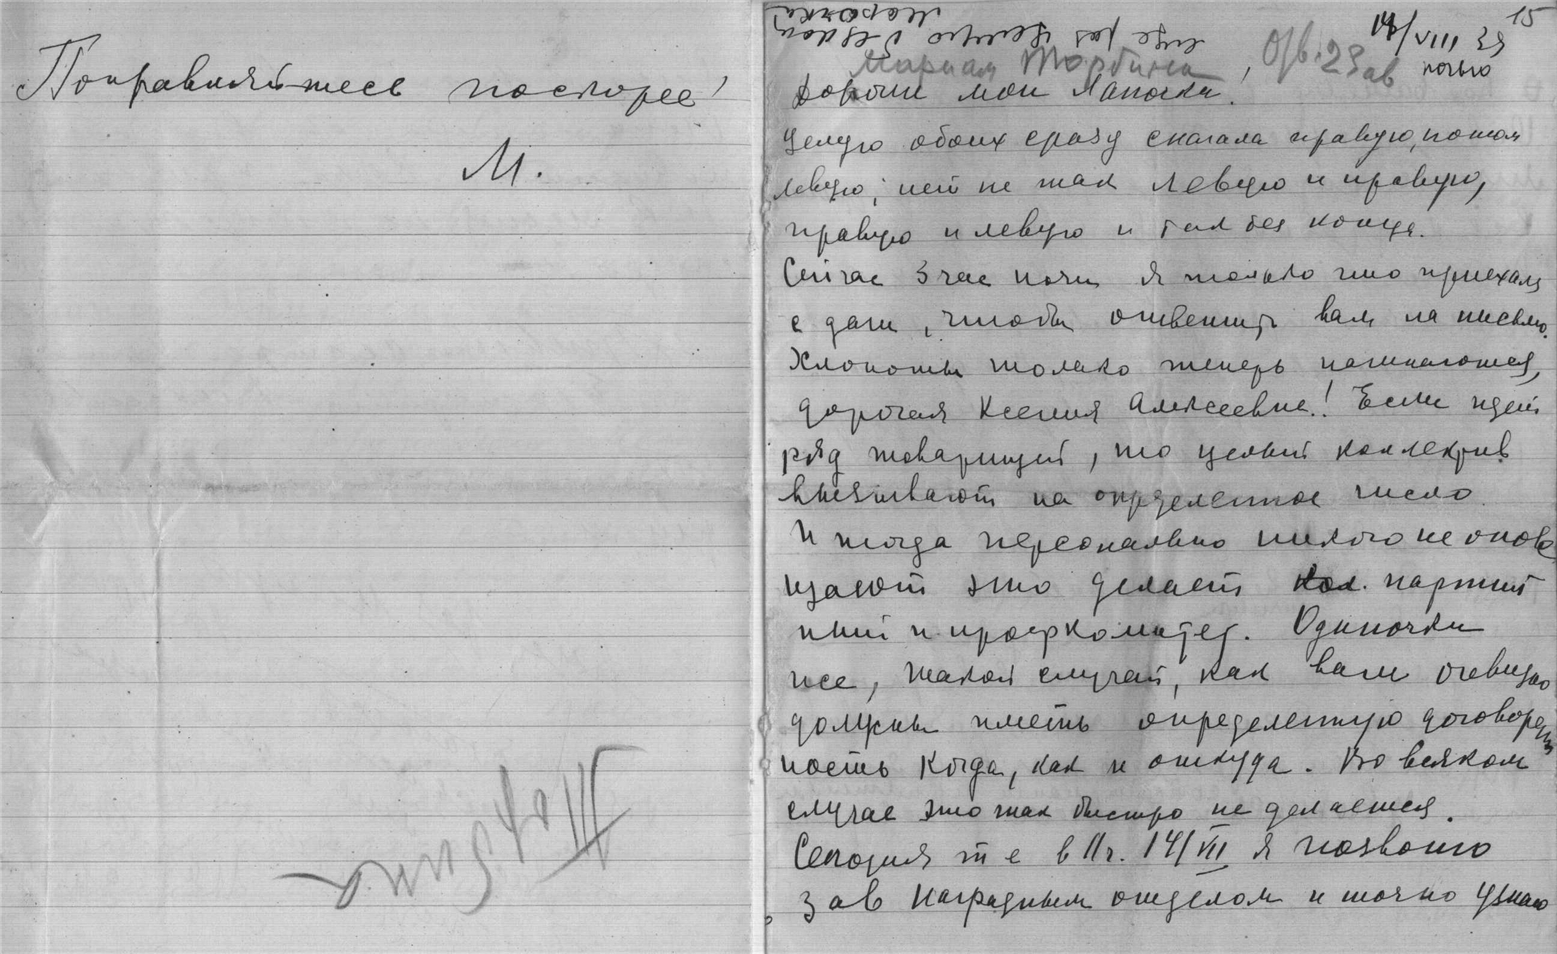 Поправляйтесь поскорее!
М.
Торбина
15
14/VIII 39
ночью
еще раз целую
Марочка
Мириам Торбина, Отв. 23 ав
Дорогие мои Лапочки!
Целую обоих сразу сначала правую, потом
левую, ней не так левую и правую,
правую и левую и так без конца.
Сейчас 3 час ночи я только что приехала
с дачи, чтобы ответить вам на письмо.
Хлопоты только теперь начинаются,
дорогая Ксения Алексеевна! Если идет
ряд товарищей, то целый коллектив
вызывают на определенное число.
И тогда персонально никого не опове
щают это делает кол. партий
ный и профкомитет. Одиночки
же, такой случай, как ваш очевидно
должны иметь определенную договорен
ность когда, как и откуда. Во всяком
случае это так быстро не делается.
Сегодня т е в 11 ч. 14/VIII я позвоню
зав наградным отделом и точно узнаю